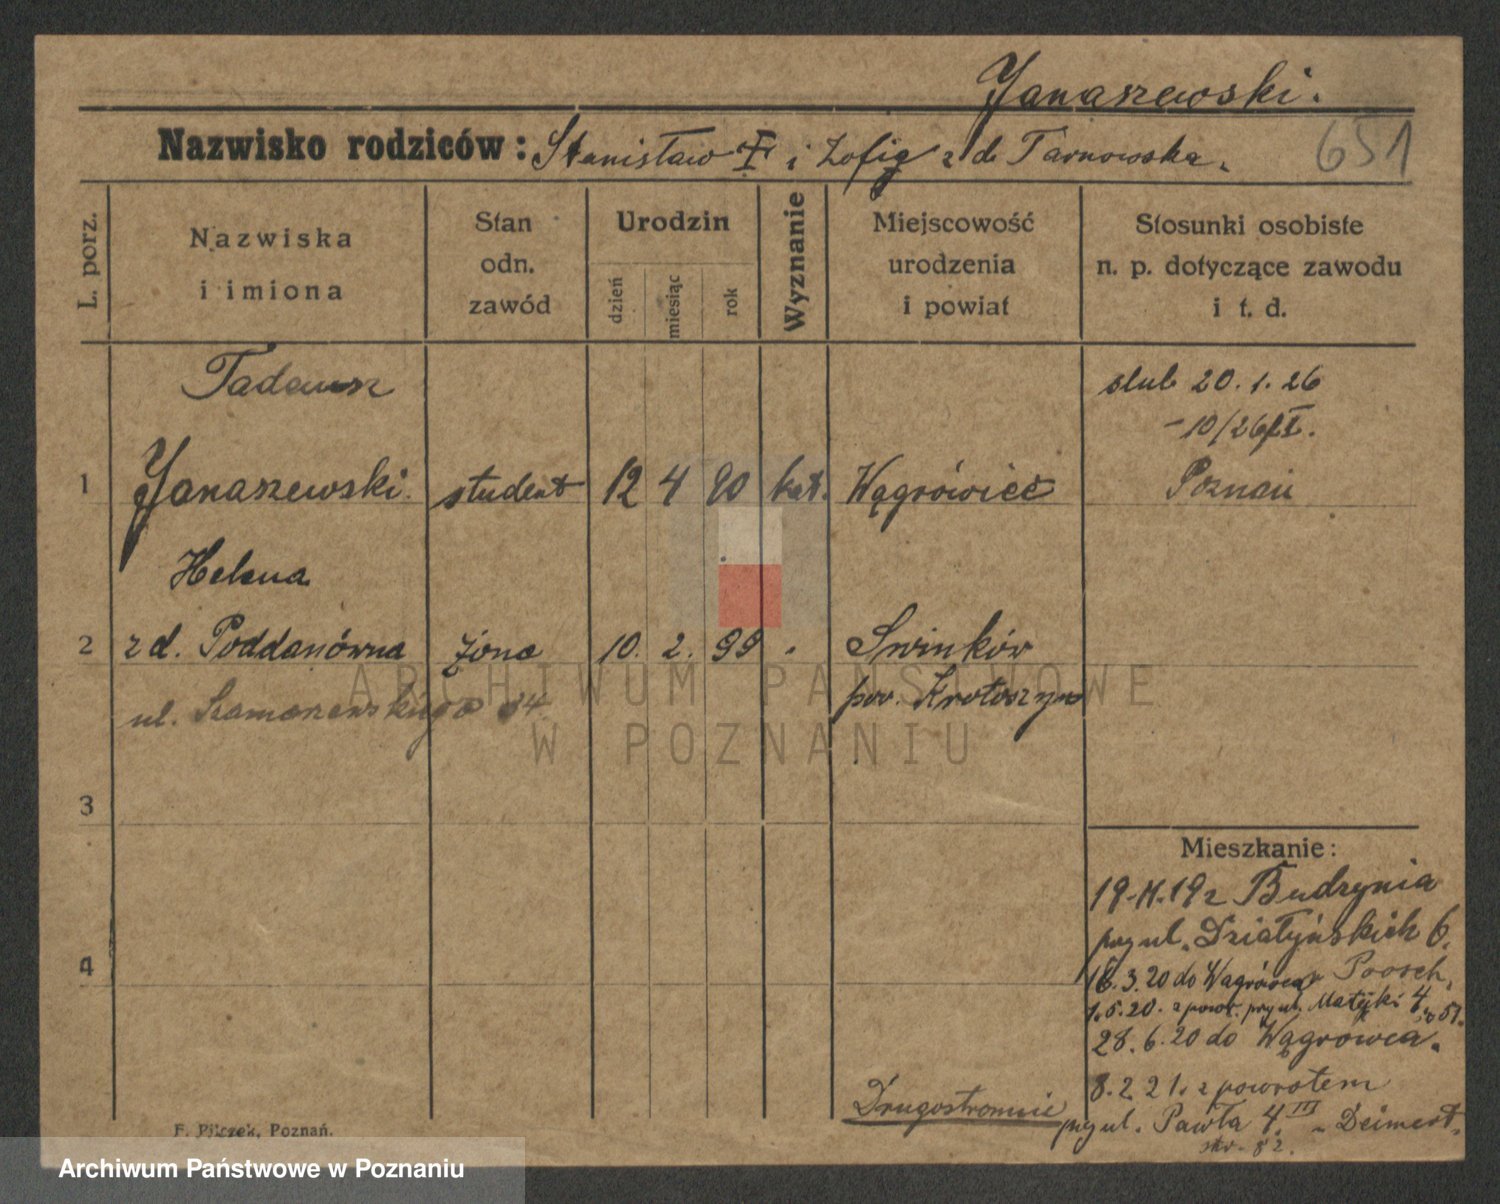 Janaszewski.
Nazwisko rodziców: Stanisław i Zofia z d. Tarnowska.
651
L. porz.
Nazwiska
i imiona
Stan
odn.
zawód
Urodzin
dzień
miesiąc
rok
Wyznanie
Miejscowość
urodzenia
i powiat
Stosunki osobiste
n. p. dotyczące zawodu
i t. d.
Tadeusz
ślub 20. 1. 26
10/26
1 Janaszewski. student 12 4 90 kat. Wągrówiec Poznań
Helena
2 z d. Poddanówna żona 10. 2. 99 Swinków
pow. Krotoszyn
ul.
3
4
Mieszkanie:
19 z Budzynia
przy ul. Działyńskich 6.
18. 3. 20 do Wągrówca
1. 5. 20. z powr. przy ul. Matejki 4
28. 6. 20 do Wągrówca.
8. 2. 21. z powrotem
Drugostronnie
przy ul. Pawła 4. III Deimert.
F. Pilczek, Poznań.
ARCHIWUM PAŃSTWOWE
W POZNANIU
Archiwum Państwowe w Poznaniu